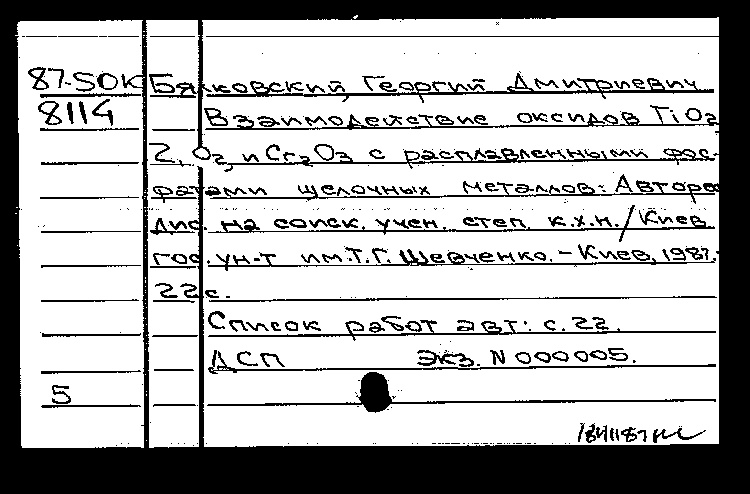 87-5ОК Бялковский, Георгий Дмитриевич
8114 Взаимодействие оксидов TiO2,
ZrO2, и Cr2O3 с расплавленными фос-
фатами щелочных металлов: Авторе
дис. на соиск. учен. степ. к.х.н. / Киев.
гос. ун-т им. Т.Г. Шевченко. - Киев, 1987.
22 с.
Список работ авт: с. 22.
ДСП Экз. N 000005.
5